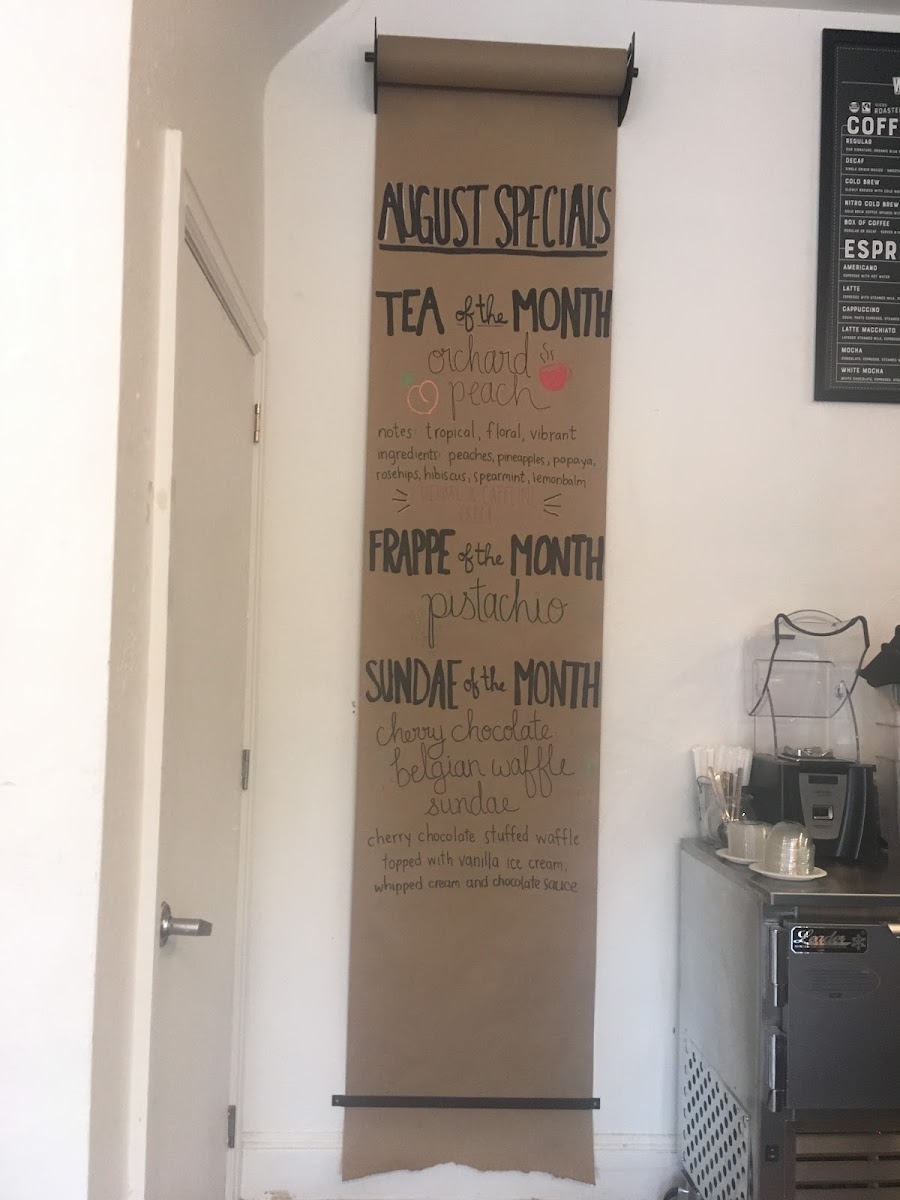 AUGUST SPECIALS
TEA of the MONTH
orchard
peach
notes: tropical, floral, vibrant
ingredients: peaches, pineapples, papaya,
rosehips, hibiscus, spearmint, lemonbalm
HERBAL & CAFFEINE
FREE
FRAPPE of the MONTH
pistachio
SUNDAE of the MONTH
cherry chocolate
belgian waffle
sundae
cherry chocolate stuffed waffle
topped with vanilla ice cream,
whipped cream and chocolate sauce
COFF
REGULAR
DECAF
COLD BREW
NITRO COLD BREW
BOX OF COFFEE
ESPR
AMERICANO
ESPRESSO WITH HOT WATER
LATTE
CAPPUCCINO
LATTE MACCHIATO
MOCHA
WHITE MOCHA
Leader